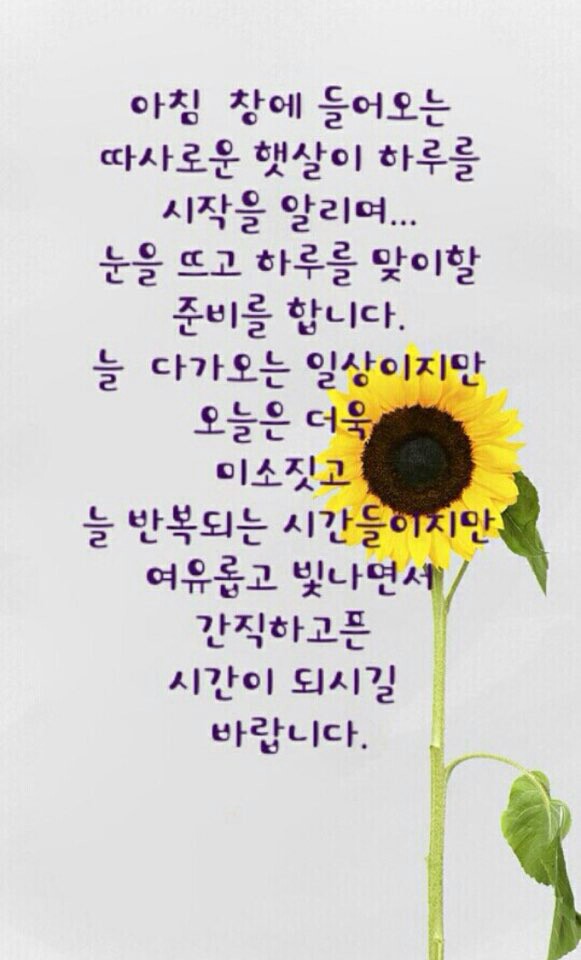 아침 창에 들어오는
따사로운 햇살이 하루를
시작을 알리며...
눈을 뜨고 하루를 맞이할
준비를 합니다.
늘 다가오는 일상이지만
오늘은 더욱
미소짓고
늘 반복되는 시간들이지만
여유롭고 빛나면서
간직하고픈
시간이 되시길
바랍니다.